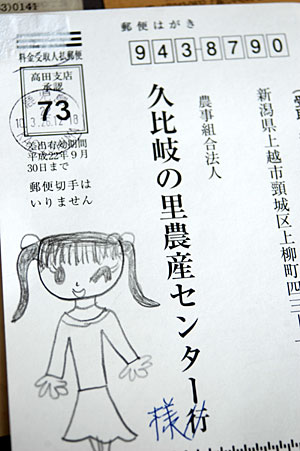 3)0141
郵便はがき
943-8790
料金受取人払郵便
高田支店
承認
73
差出有効期間
平成22年9月
30日まで
郵便切手は
いりません
新潟県上越市頸城区上柳町四三
農事組合法人
久比岐の里農産センター行
様